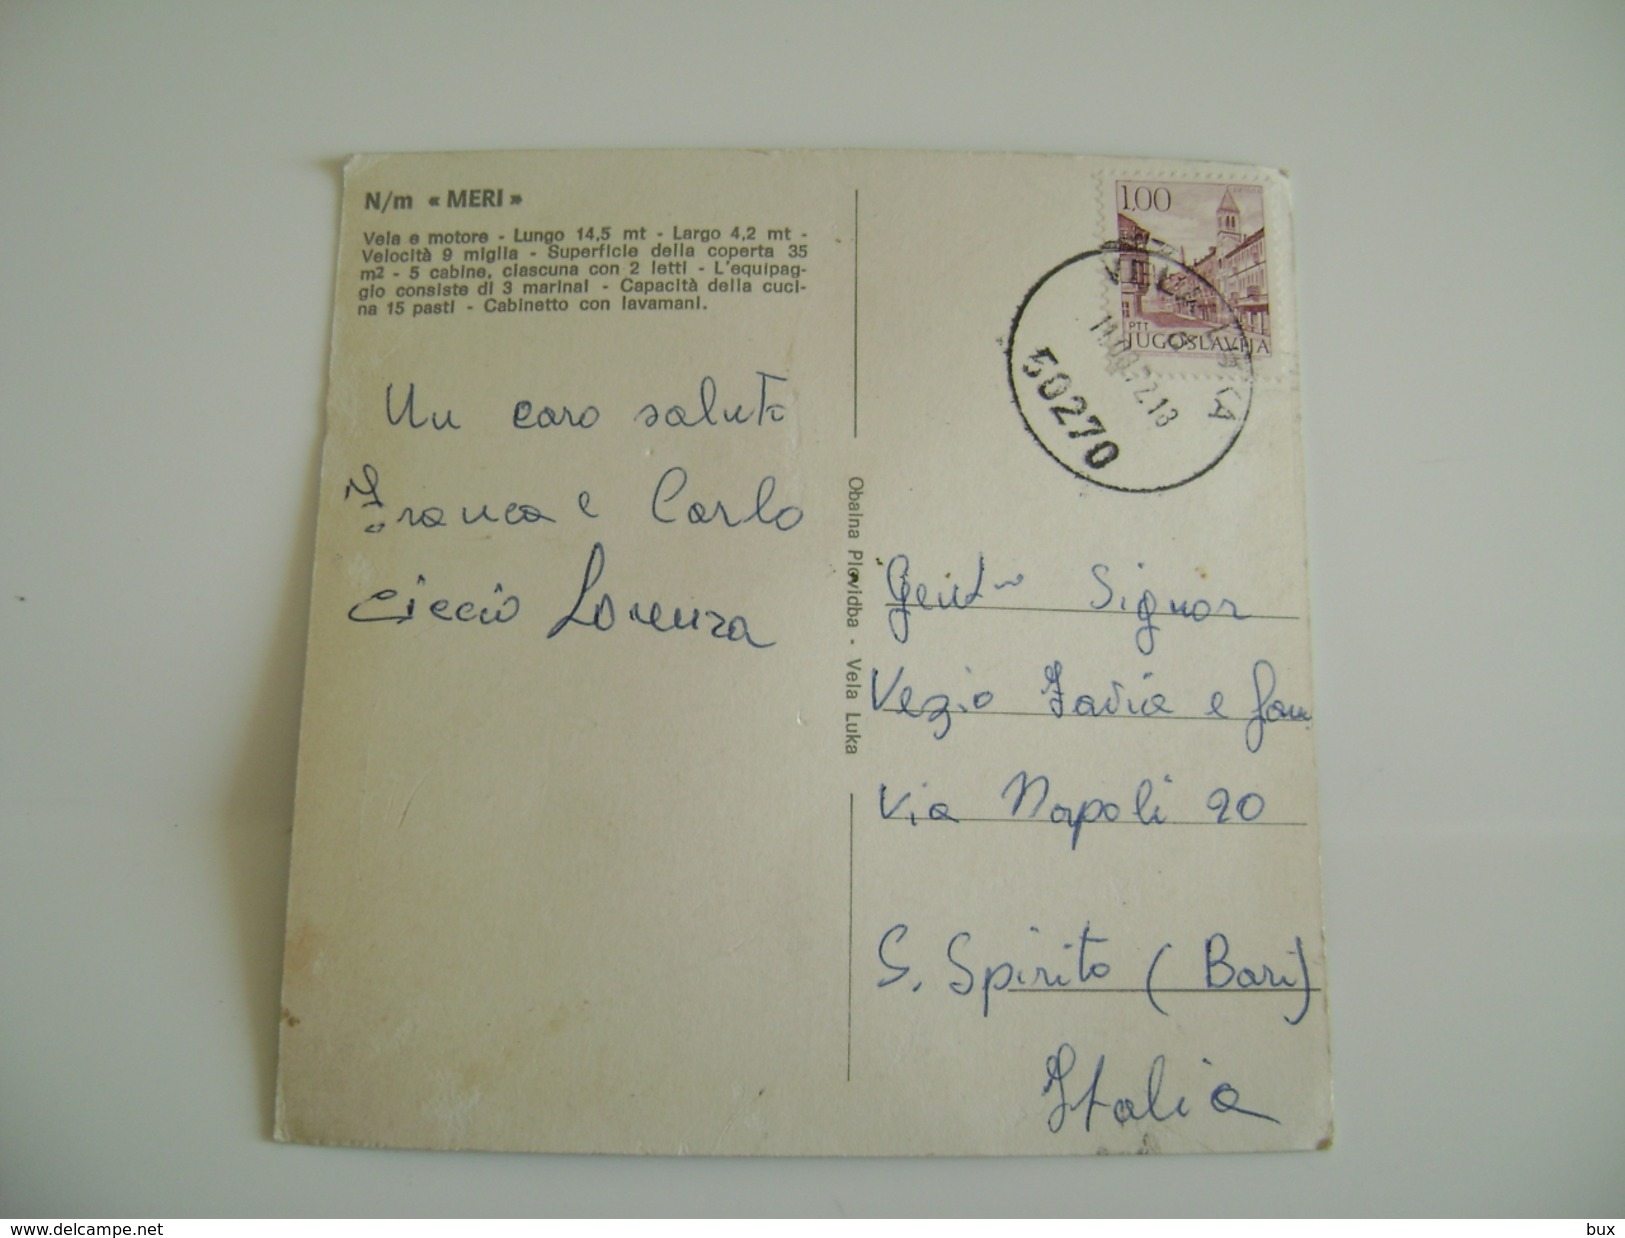 N/m « MERI »
Vela e motore - Lungo 14,5 mt - Largo 4,2 mt -
Velocità 9 miglia - Superficie della coperta 35
m2 - 5 cabine, ciascuna con 2 letti - L'equipag-
gio consiste di 3 marinai - Capacità della cuci-
na 15 pasti - Cabinetto con lavamani.
Un caro saluto
Franca e Carlo
Ciccio Lorenza
Obalna Plovidba - Vela Luka
1.00
PTT
JUGOSLAVIJA
VELA LUKA
50270
Signor
Vezio e fam
Via Napoli 20
S. Spirito (Bari)
Italia
www.delcampe.net
bux